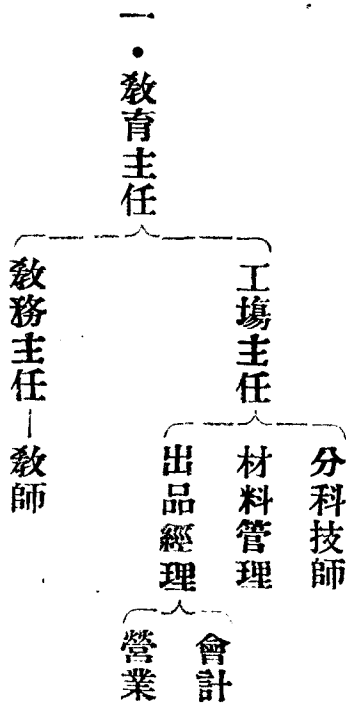 一・敎育主任
工塲主任
分科技師
材料管理
出品經理
會計
營業
敎務主任—敎師